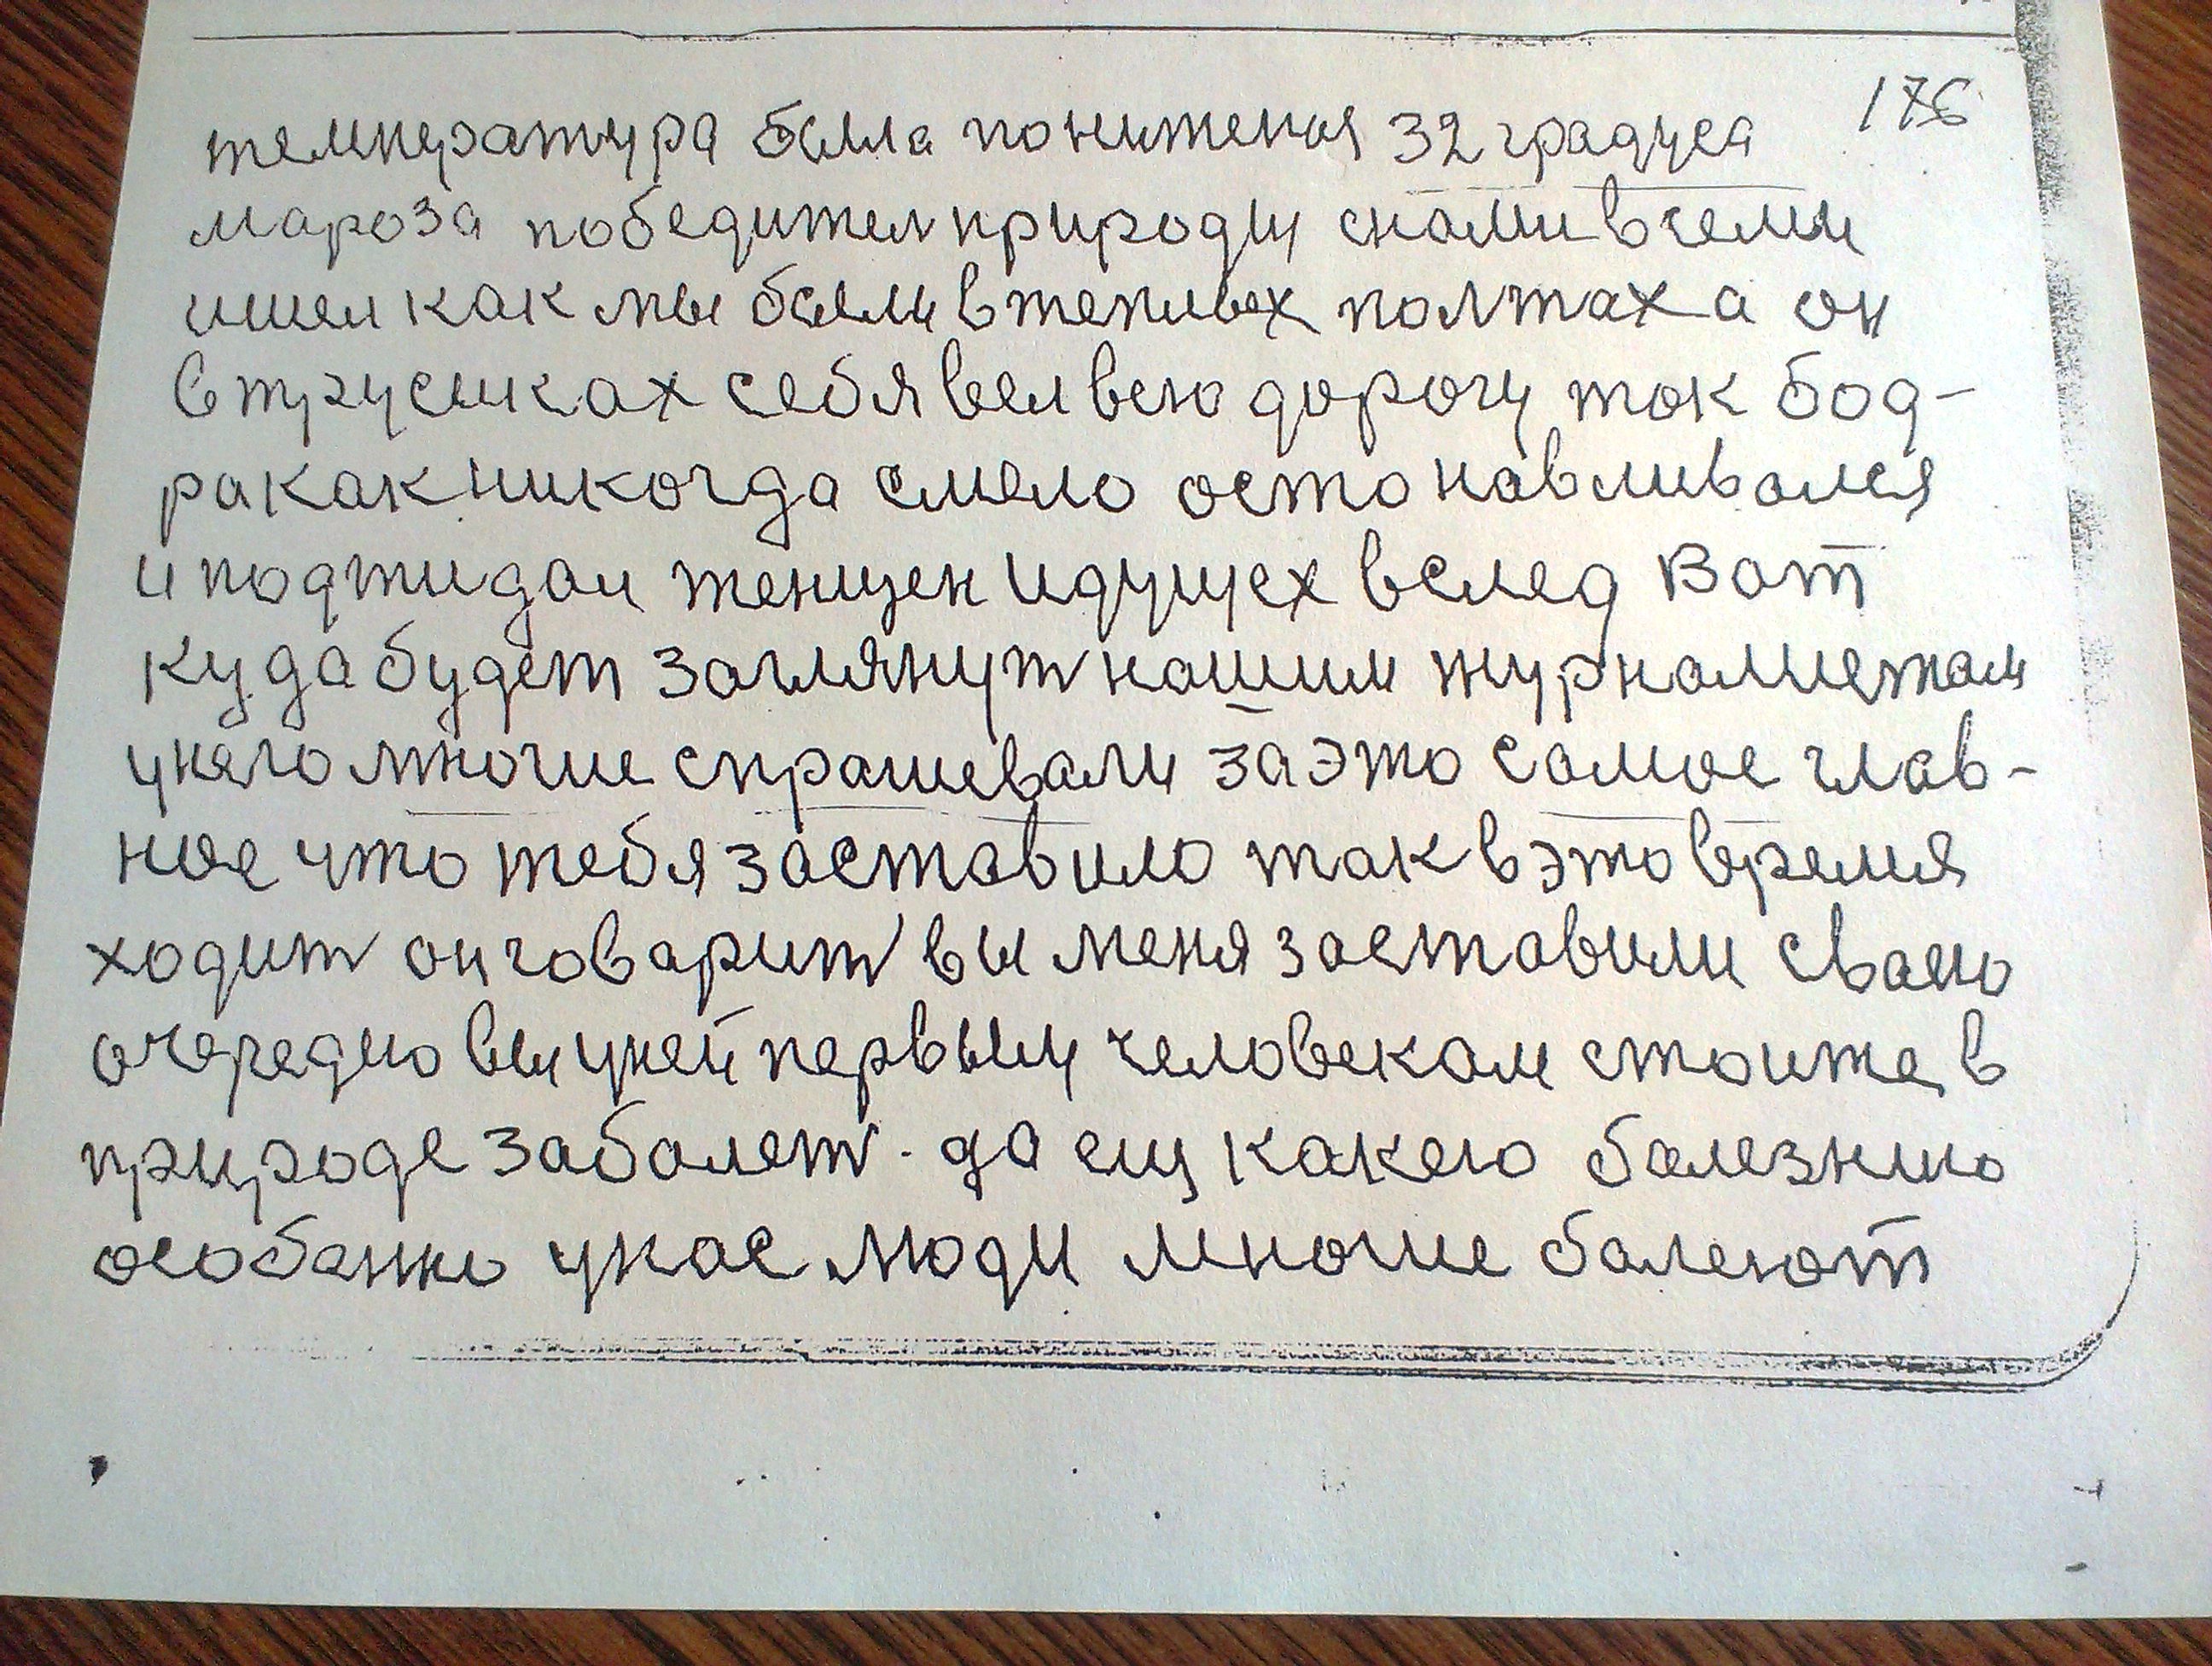 176
температура была пониженая 32 градуса
мароза победител природы снами всеми
ишел как мы были в теплых полтах а он
в трусиках себя вел всю дорогу так бод-
ра как никогда смело останавливался
и поджидал женщен идущех вслед Вот
куда будет заглянут нашим журналистам
унего многие спрашевали за это самое глав-
ное что тебя заставило так в это время
ходит он говарит вы меня заставили сваею
очередю вы уней первым человекам стоите в
природе заболет. да ещ какею болезнию
особенно унас люди многие балеют